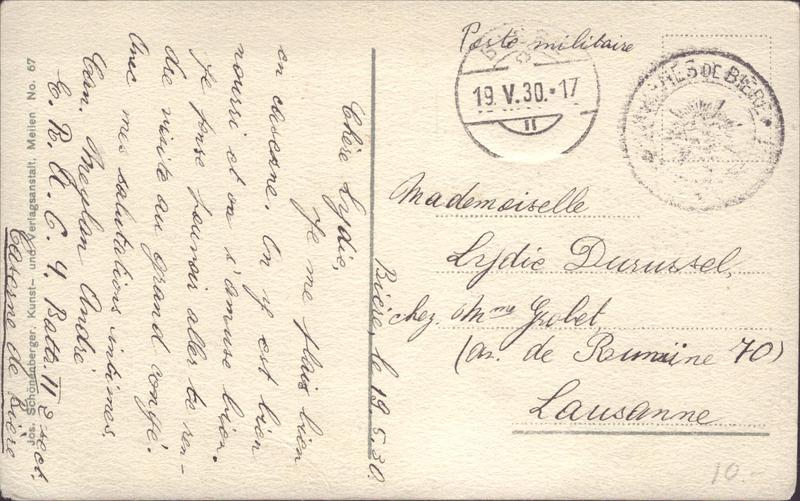 Bière, le 19.5.30.
Chère Lydie,
Je me plais bien
en caserne. On y est bien
nourri et on s'amuse bien.
Je pense pouvoir aller te ren-
dre visite au grand congé.
Avec mes salutations intimes.
Can. Meylan André
E. R. A. C. 4. Battr. II 2 sect
Caserne de Bière
Jos. Schönenberger, Kunst- und Verlagsanstalt, Meilen No. 67
Poste militaire
19.V.30.-17
II
DE BIÈRE
Mademoiselle
Lydie Durussel,
chez Mme Grobet,
(av. de Rumine 70)
Lausanne
10.-